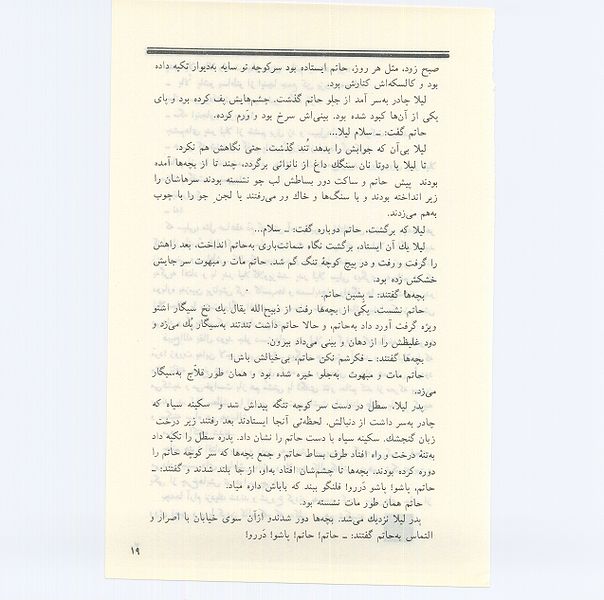 صبح زود، مثل هر روز، حاتم ایستاده بود سرکوچه تو سایه به‌دیوار تکیه داده
بود و کالسکه‌اش کنارش بود.
لیلا چادر به‌سر آمد از جلو حاتم گذشت. چشم‌هایش پف کرده بود و پای
یکی از آن‌ها کبود شده بود. بینی‌اش سرخ بود و وَرم کرده.
حاتم گفت: ــ سلام لیلا...
لیلا بی‌آن که جوابش را بدهد تُند گذشت. حتی نگاهش هم نکرد.
تا لیلا با دوتا نان سنگك داغ از نانوائی برگردد، چند تا از بچه‌ها آمده
بودند پیش حاتم و ساکت دور بساطش لب جو نشسته بودند سرهاشان را
زیر انداخته بودند و با سنگ‌ها و خاك ور می‌رفتند یا لجن جو را با چوب
به‌هم می‌زدند.
لیلا که برگشت، حاتم دوباره گفت: ــ سلام...
لیلا یك آن ایستاد، برگشت نگاه شماتت‌باری به‌حاتم انداخت، بعد راهش
را گرفت و رفت و در پیچ کوچهٔ تنگ گم شد. حاتم مات و مبهوت سر جایش
خشکش زده بود.
بچه‌ها گفتند: ــ بِشین حاتم.
حاتم نشست. یکی از بچه‌ها رفت از ذبیح‌الله بقال یك نخ سیگار اشنو
ویژه گرفت آورد داد به‌حاتم، و حالا حاتم داشت تندتند به‌سیگار پُك می‌زد و
دود غلیظش را از دهان و بینی می‌داد بیرون.
بچه‌ها گفتند: ــ فکرشم نکن حاتم، بی‌خیالش باش!
حاتم مات و مبهوت به‌جلو خیره شده بود و همان طور قلاج به‌سیگار
می‌زد.
پدر لیلا، سطل در دست سر کوچه تنگه پیداش شد و سکینه سیاه که
چادر به‌سر داشت از دنبالش. لحظه‌ئی آنجا ایستادند بعد رفتند زیر درخت
زبان گنجشك. سکینه سیاه با دست حاتم را نشان داد. پدره سطل را تکیه داد
به‌تنهٔ درخت و راه افتاد طرف بساط حاتم و جمع بچه‌ها که سر کوچه حاتم را
دوره کرده بودند. بچه‌ها تا چشم‌شان افتاد به‌او، از جا بلند شدند و گفتند: ــ
حاتم، پاشو! پاشو دَررو! قلنگو ببند که باباش داره میاد.
حاتم همان طور مات نشسته بود.
پدر لیلا نزدیك می‌شد. بچه‌ها دور شدندو ازآن سوی خیابان با اصرار و
التماس به‌حاتم گفتند: ــ حاتم! حاتم! پاشو! دَررو!
۱۹